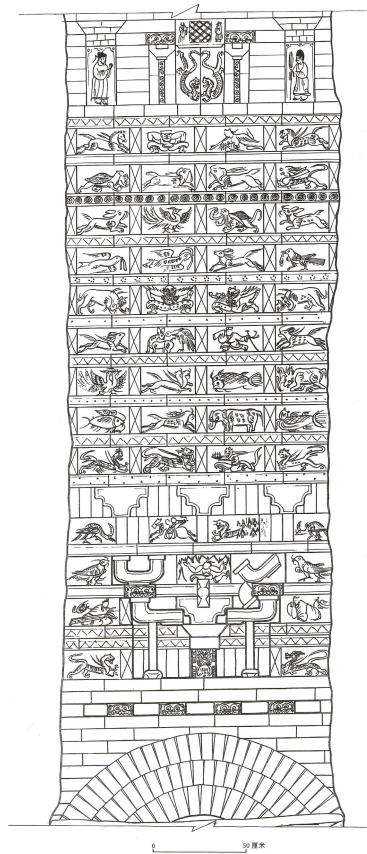 0 50厘米